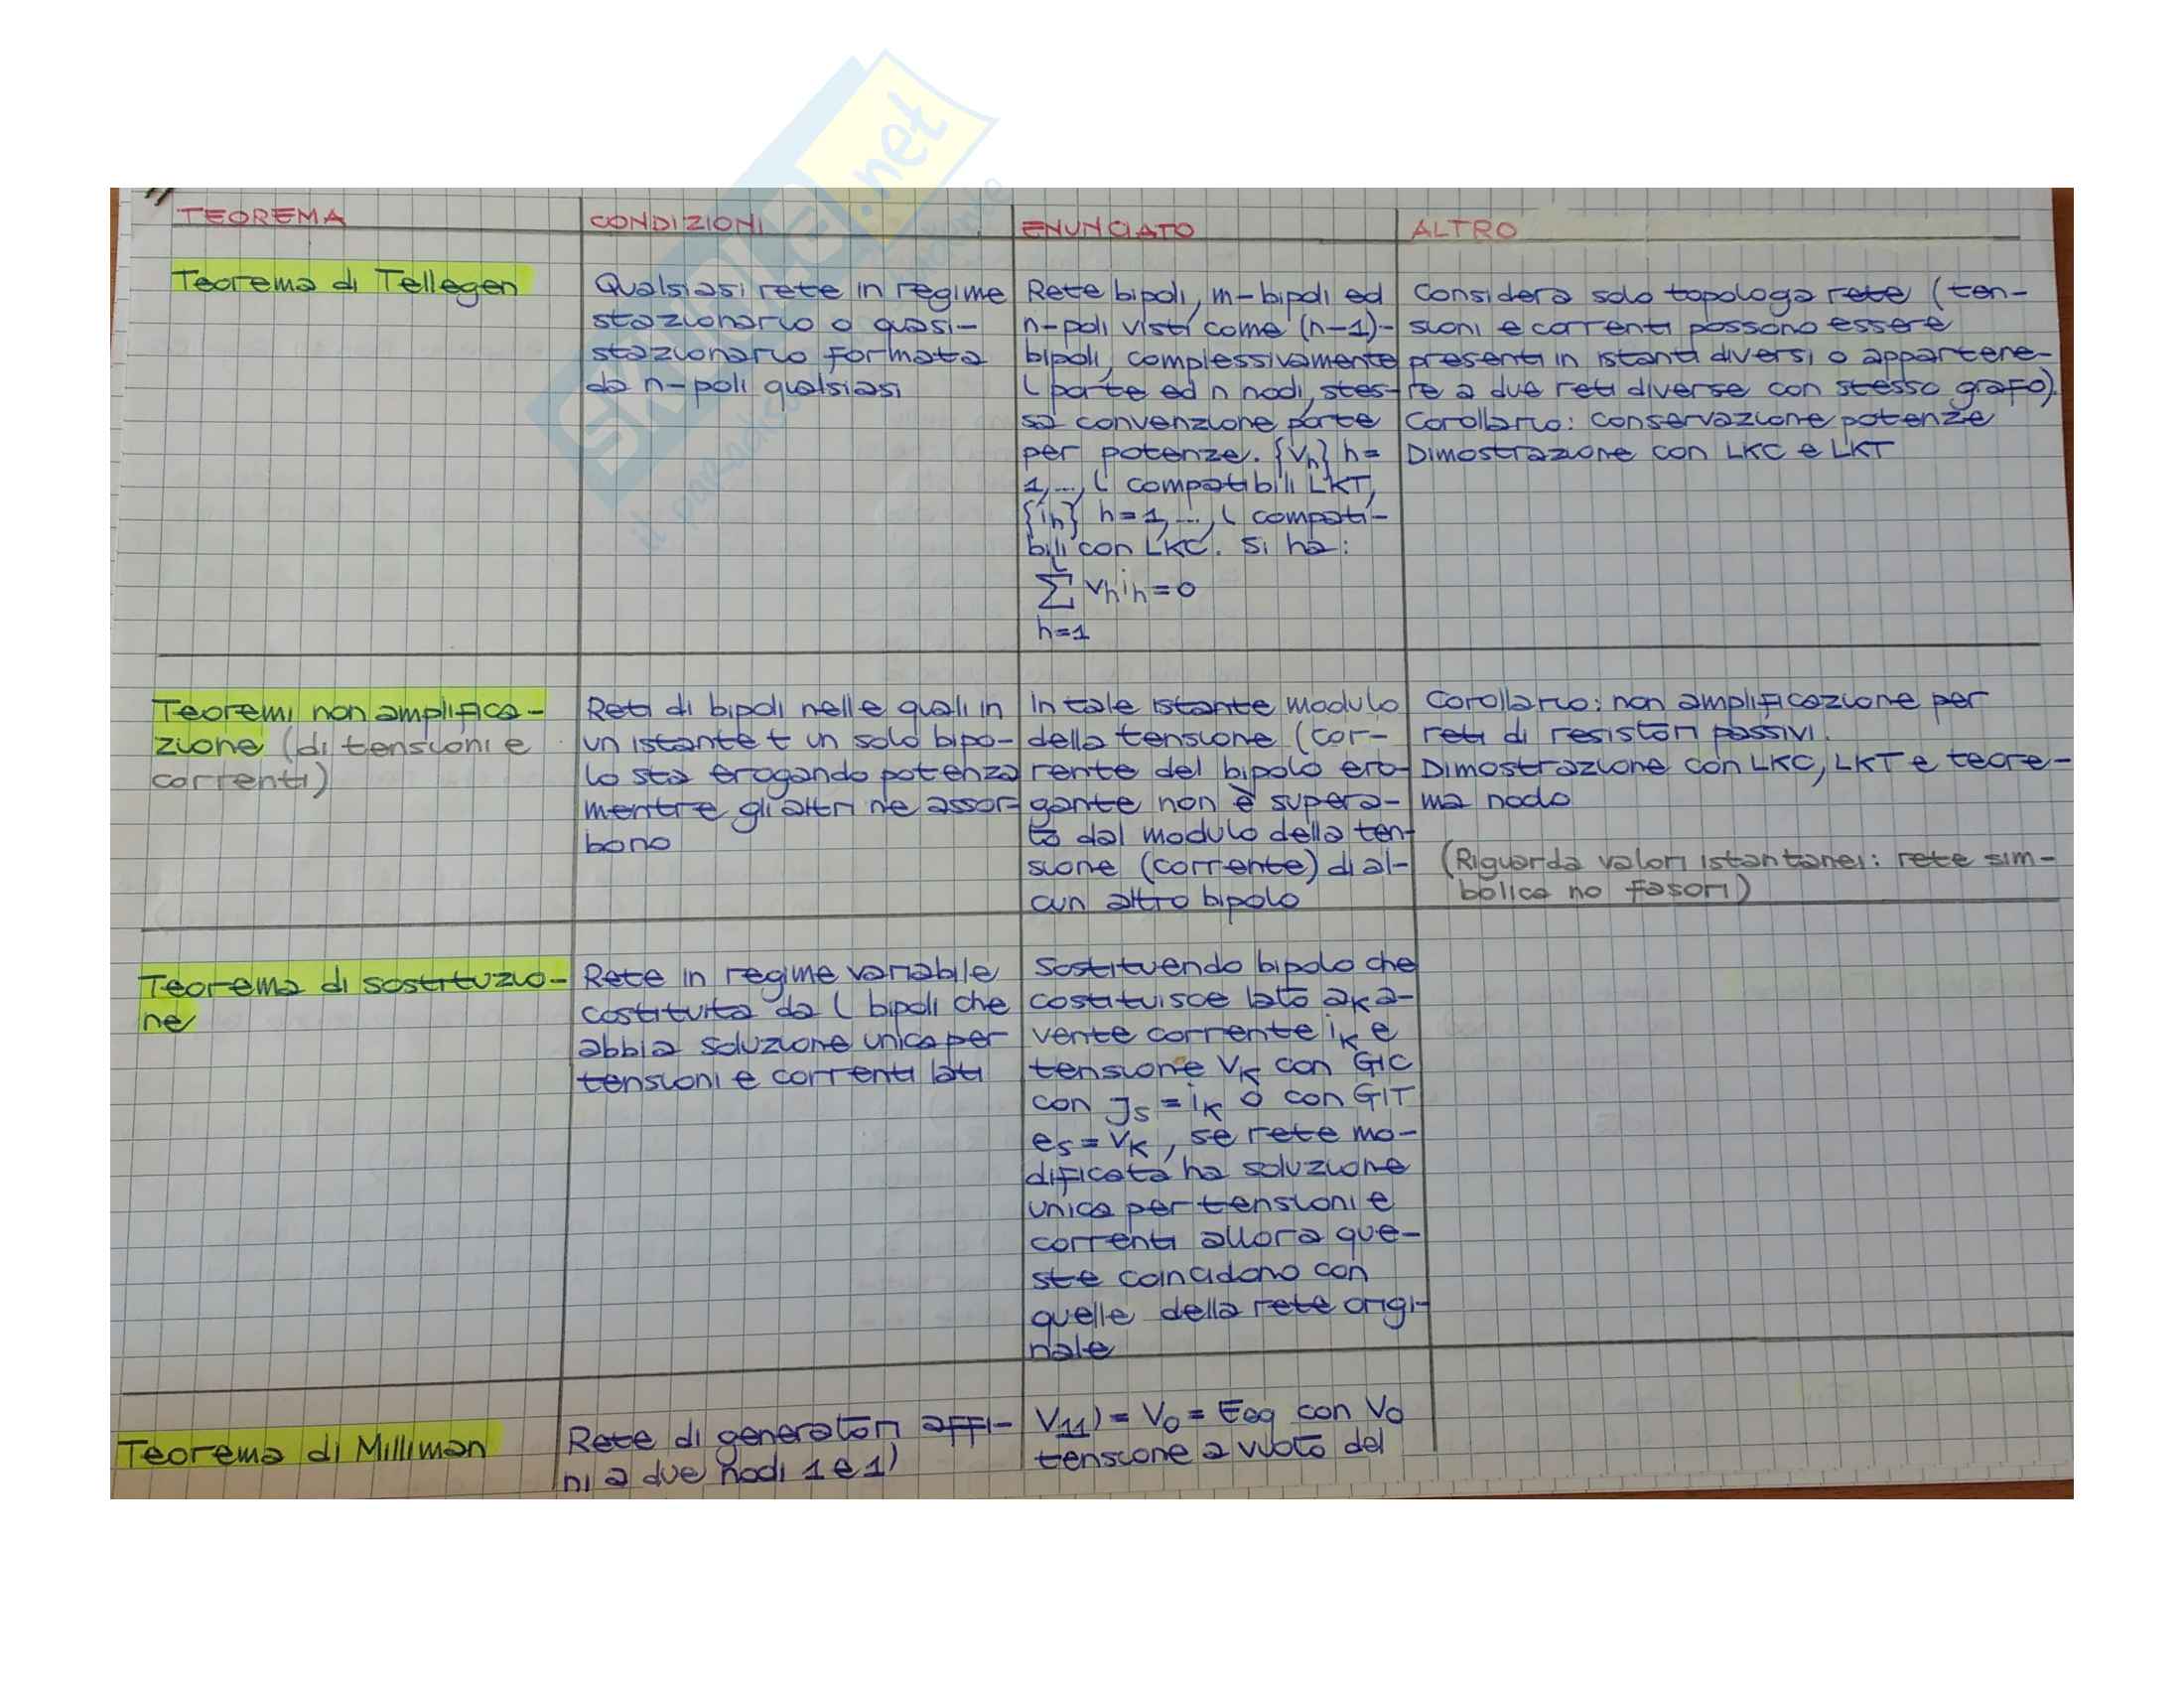 SKUOLA.net
TEOREMA
CONDIZIONI
ENUNCIATO
ALTRO
Teorema di Tellegen
Qualsiasi rete in regime
stazionario o quasi-
stazionario formata
da n-poli qualsiasi
Rete bipoli, m-bipoli ed
n-poli visti come (n-1)-
bipoli, complessivamente
l parte ed n nodi, stes-
sa convenzione parte
per potenze. {vh} h=
1,..., l compatibili LKT,
{ih} h=1,..., l compati-
bili con LKC. Si ha:
l
∑ vh ih = 0
h=1
Considera solo topologa rete (ten-
sioni e correnti possono essere
presenti in istanti diversi o appartene-
re a due reti diverse con stesso grafo).
Corollario: conservazione potenze
Dimostrazione con LKC e LKT
Teoremi non amplifica-
zione (di tensioni e
correnti)
Reti di bipoli nelle quali in
un istante t un solo bipo-
lo sta erogando potenza
mentre gli altri ne assor-
bono
In tale istante modulo
della tensione (cor-
rente del bipolo ero-
gante non è supera-
to dal modulo della ten-
sione (corrente) di al-
cun altro bipolo
Corollario: non amplificazione per
reti di resistori passivi.
Dimostrazione con LKC, LKT e teore-
ma nodo
(Riguarda valori istantanei: rete sim-
bolica no fasori)
Teorema di sostituzio-
ne
Rete in regime variabile
costituita da l bipoli che
abbia soluzione unica per
tensioni e correnti lati
Sostituendo bipolo che
costituisce lato aK a-
vente corrente iK e
tensione VK con GIC
con Js = iK o con GIT
es = VK, se rete mo-
dificata ha soluzione
unica per tensioni e
correnti allora que-
ste coincidono con
quelle della rete origi-
nale
Teorema di Milliman
Rete di generatori affi-
ni a due nodi 1 e 1)
V11) = V0 = Eeq con V0
tensione a vuoto del